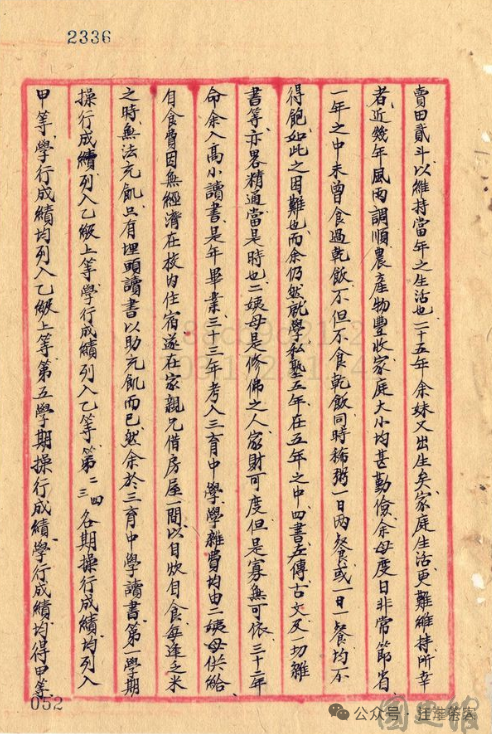 2336
賣田貳斗以維持當年之生活也二十五年余妹又出生矣家庭生活更難維持所幸
者近幾年風雨調順農產物豐收家庭大小均甚勤儉余母度日非常節省
一年之中未曾食過乾飯不但不食乾飯同時稀粥一日兩餐或一日一餐均不
得飽如此之困難也而余仍然就學私塾五年在五年之中四書左傳古文及一切雜
書等亦畧精通當是時也二姨母是修佛之人家財可度但是寡無可依三十二年
命余入高小讀書是年畢業三十三年考入三育中學學雜費均由二姨母供給
自食費因無經濟在校內住宿遂在家親兄借房屋一間以自炊自食每逢乏米
之時無法充飢只有埋頭讀書以助充飢而已然余於三育中學讀書第一學期
操行成績列入乙級上等學行成績列入乙等第二三四各期操行成績均列入
甲等學行成績均列入乙級上等第五學期操行成績學行成績均得甲等
052
公众号
國史館